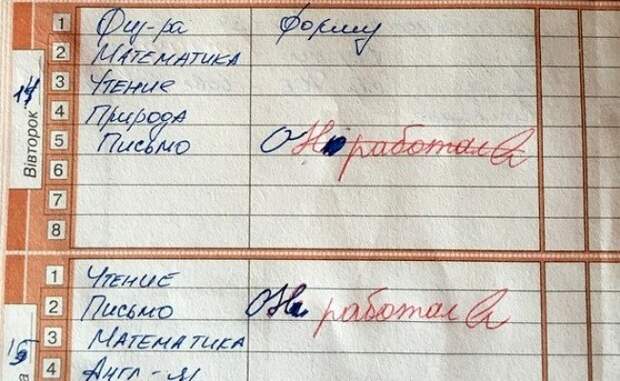 1 Физ-ра форму
2 Математика
3 Чтение
4 Природа
5 Письмо Она работала
6
7
8
14
Вівторок
1 Чтение
2 Письмо Она работала
3 Математика
4 Англ-я
15